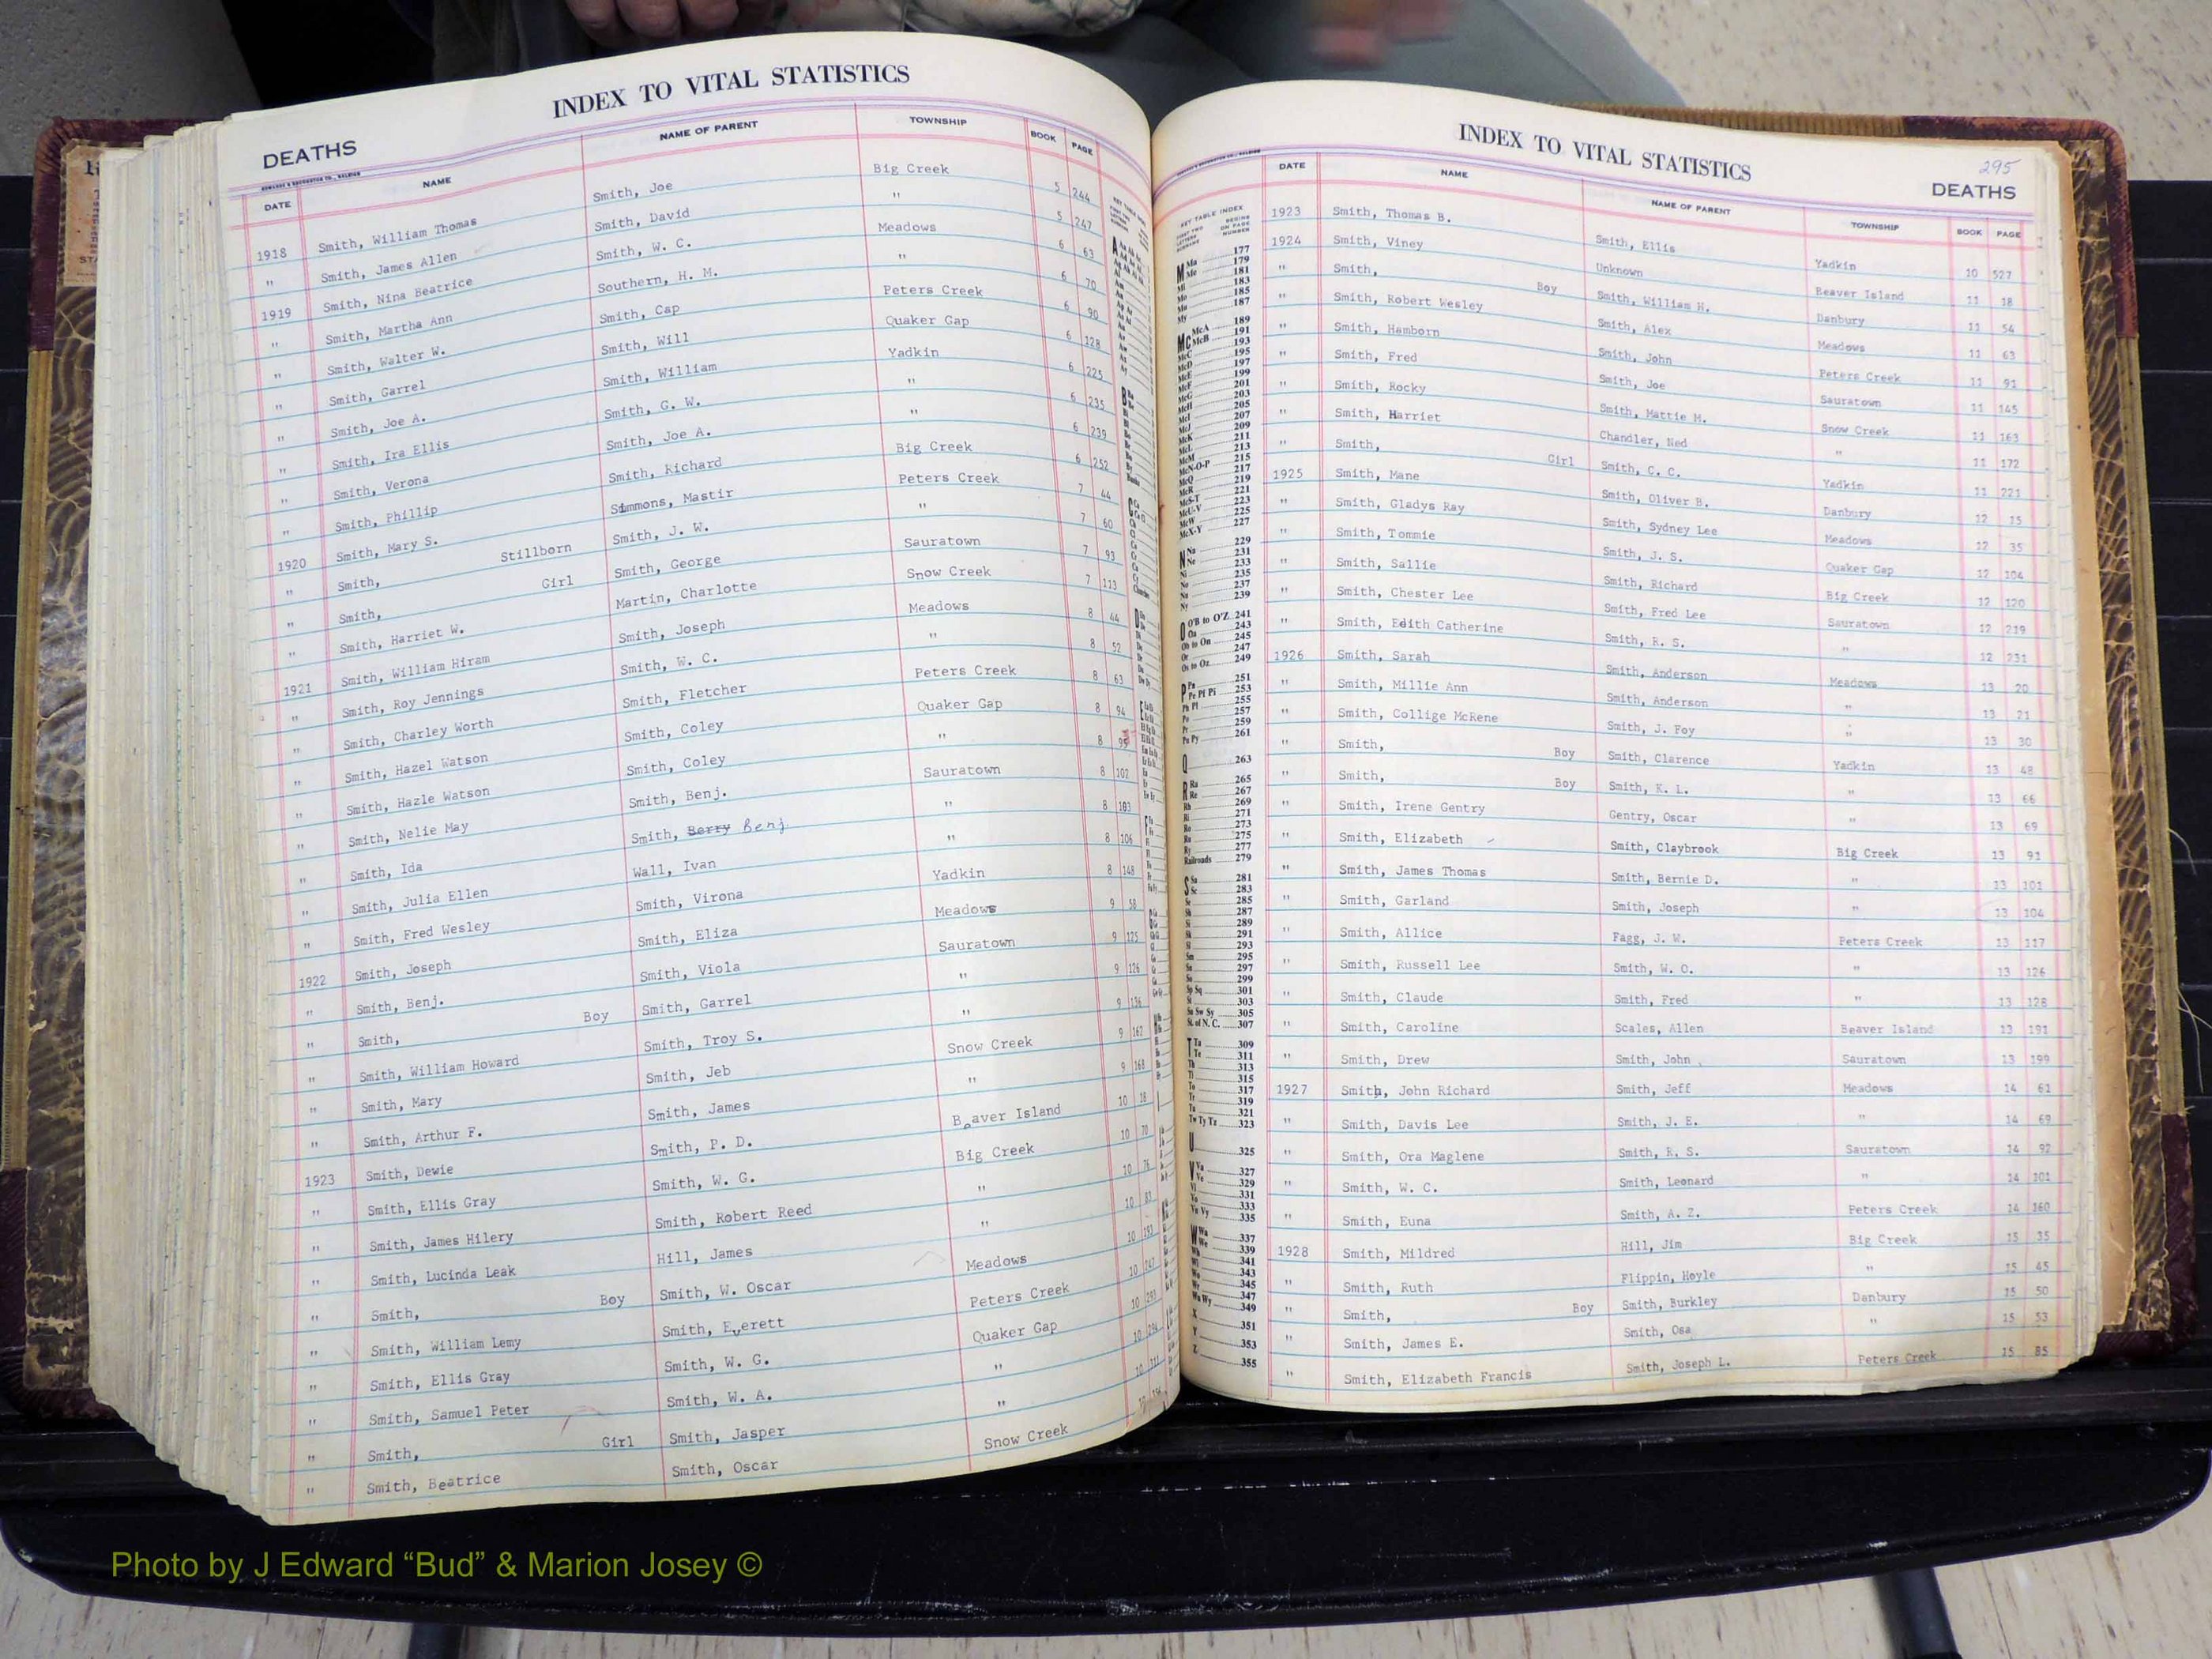 INDEX TO VITAL STATISTICS
DEATHS
DATE NAME NAME OF PARENT TOWNSHIP BOOK PAGE
1918 Smith, William Thomas Smith, Joe Big Creek 5 244
" Smith, James Allen Smith, David " 5 247
1919 Smith, Nina Beatrice Smith, W. C. Meadows 6 63
" Smith, Martha Ann Southern, H. M. " 6 70
" Smith, Walter W. Smith, Cap Peters Creek 6 90
" Smith, Garrel Smith, Will Quaker Gap 6 128
" Smith, Joe A. Smith, William Yadkin 6 225
" Smith, Ira Ellis Smith, G. W. " 6 235
" Smith, Verona Smith, Joe A. " 6 239
" Smith, Phillip Smith, Richard Big Creek 6 252
1920 Smith, Mary S. Simmons, Mastir Peters Creek 7 44
" Smith, Stillborn Smith, J. W. " 7 60
" Smith, Girl Smith, George Sauratown 7 93
" Smith, Harriet W. Martin, Charlotte Snow Creek 7 113
1921 Smith, William Hiram Smith, Joseph Meadows 8 44
" Smith, Roy Jennings Smith, W. C. " 8 52
" Smith, Charley Worth Smith, Fletcher Peters Creek 8 63
" Smith, Hazel Watson Smith, Coley Quaker Gap 8 94
" Smith, Hazle Watson Smith, Coley " 8 95
" Smith, Nelie May Smith, Benj. Sauratown 8 102
" Smith, Ida Smith, Berry Benj " 8 103
" Smith, Julia Ellen Wall, Ivan " 8 106
" Smith, Fred Wesley Smith, Virona Yadkin 8 148
1922 Smith, Joseph Smith, Eliza Meadows 9 58
" Smith, Benj. Smith, Viola Sauratown 9 125
" Smith, Boy Smith, Garrel " 9 126
" Smith, William Howard Smith, Troy S. " 9 136
" Smith, Mary Smith, Jeb Snow Creek 9 162
" Smith, Arthur F. Smith, James " 9 168
1923 Smith, Dewie Smith, P. D. Beaver Island 10 18
" Smith, Ellis Gray Smith, W. G. Big Creek 10 70
" Smith, James Hilery Smith, Robert Reed " 10 76
" Smith, Lucinda Leak Hill, James " 10 83
" Smith, Boy Smith, W. Oscar Meadows 10 193
" Smith, William Lemy Smith, Everett Peters Creek 10 247
" Smith, Ellis Gray Smith, W. G. Quaker Gap 10 293
" Smith, Samuel Peter Smith, W. A. " 10 294
" Smith, Girl Smith, Jasper "
" Smith, Beatrice Smith, Oscar Snow Creek
INDEX TO VITAL STATISTICS
295
DEATHS
DATE NAME NAME OF PARENT TOWNSHIP BOOK PAGE
1923 Smith, Thomas B. Smith, Ellis Yadkin 10 527
1924 Smith, Viney Unknown Beaver Island 11 18
" Smith, Boy Smith, William H. Danbury 11 54
" Smith, Robert Wesley Smith, Alex Meadows 11 63
" Smith, Hamborn Smith, John Peters Creek 11 91
" Smith, Fred Smith, Joe Sauratown 11 145
" Smith, Rocky Smith, Mattie M. Snow Creek 11 163
" Smith, Harriet Chandler, Ned " 11 172
" Smith, Girl Smith, C. C. Yadkin 11 221
1925 Smith, Mane Smith, Oliver B. Danbury 12 15
" Smith, Gladys Ray Smith, Sydney Lee Meadows 12 35
" Smith, Tommie Smith, J. S. Quaker Gap 12 104
" Smith, Sallie Smith, Richard Big Creek 12 120
" Smith, Chester Lee Smith, Fred Lee Sauratown 12 219
" Smith, Edith Catherine Smith, R. S. " 12 231
1926 Smith, Sarah Smith, Anderson Meadows 13 20
" Smith, Millie Ann Smith, Anderson " 13 21
" Smith, Collige McRene Smith, J. Foy " 13 30
" Smith, Boy Smith, Clarence Yadkin 13 48
" Smith, Boy Smith, K. L. " 13 66
" Smith, Irene Gentry Gentry, Oscar " 13 69
" Smith, Elizabeth Smith, Claybrook Big Creek 13 91
" Smith, James Thomas Smith, Bernie D. " 13 101
" Smith, Garland Smith, Joseph " 13 104
" Smith, Allice Fagg, J. W. Peters Creek 13 117
" Smith, Russell Lee Smith, W. O. " 13 126
" Smith, Claude Smith, Fred " 13 128
" Smith, Caroline Scales, Allen Beaver Island 13 191
" Smith, Drew Smith, John Sauratown 13 199
1927 Smith, John Richard Smith, Jeff Meadows 14 61
" Smith, Davis Lee Smith, J. E. " 14 69
" Smith, Ora Maglene Smith, R. S. Sauratown 14 92
" Smith, W. C. Smith, Leonard " 14 101
" Smith, Euna Smith, A. Z. Peters Creek 14 160
1928 Smith, Mildred Hill, Jim Big Creek 15 35
" Smith, Ruth Flippin, Hoyle " 15 45
" Smith, Boy Smith, Burkley Danbury 15 50
" Smith, James E. Smith, Osa " 15 53
" Smith, Elizabeth Francis Smith, Joseph L. Peters Creek 15 85
Photo by J Edward “Bud” & Marion Josey ©